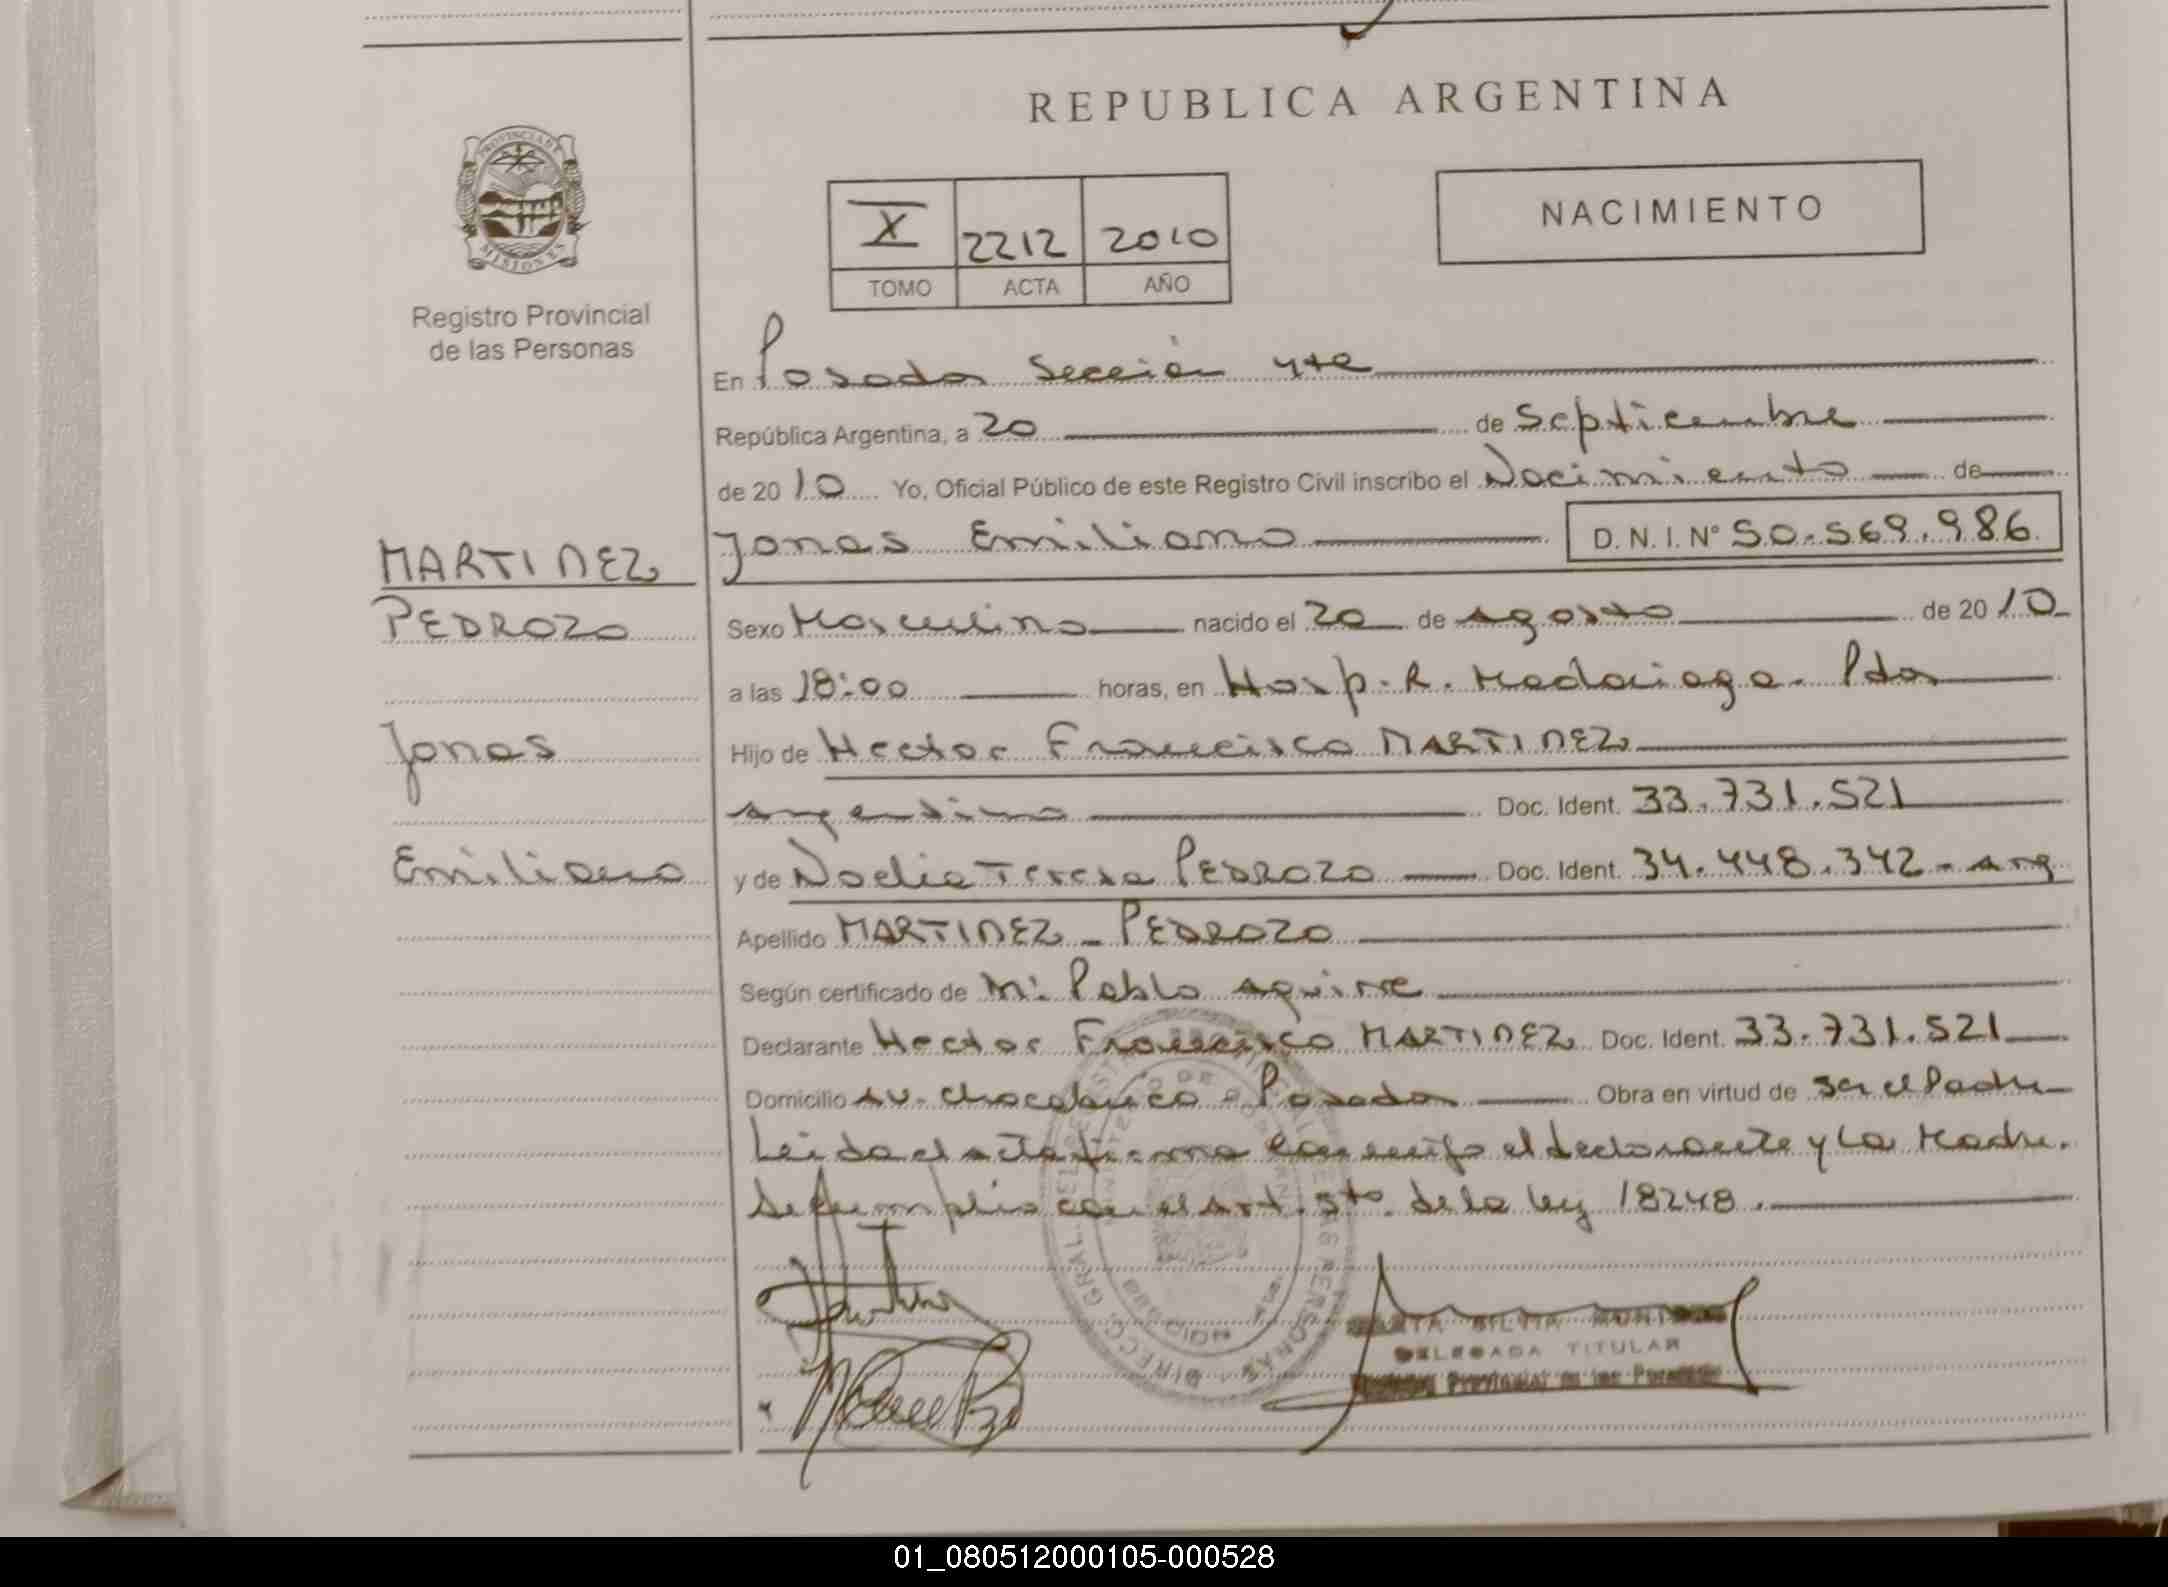 REPUBLICA ARGENTINA
PROVINCIA DE MISIONES
Registro Provincial
de las Personas
X 2212 2010
TOMO ACTA AÑO
NACIMIENTO
En Posadas Sección 4ta
República Argentina, a 20 de Septiembre
de 2010 Yo, Oficial Público de este Registro Civil inscribo el Nacimiento de
MARTINEZ
PEDROZO
Jonas
Emiliano
Jonas Emiliano D.N.I. N° 50.569.986
Sexo Masculino nacido el 20 de agosto de 2010
a las 18:00 horas, en Hosp. R. Madariaga. Pdas
Hijo de Hector Francisco MARTINEZ
argentino Doc. Ident. 33.731.521
y de Noelia Teresa PEDROZO Doc. Ident. 34.448.342 - arg
Apellido MARTINEZ - PEDROZO
Según certificado de Pablo Aguirre
Declarante Hector Francisco MARTINEZ Doc. Ident. 33.731.521
Domicilio Av. Chocabuco - Posadas Obra en virtud de ser el Padre
Leida el acta firma conmigo el declarante y la Madre.
Se cumplio con el art. 5to. de la ley 18248.
DELEGADA TITULAR
Provincial de las Personas
01_080512000105-000528